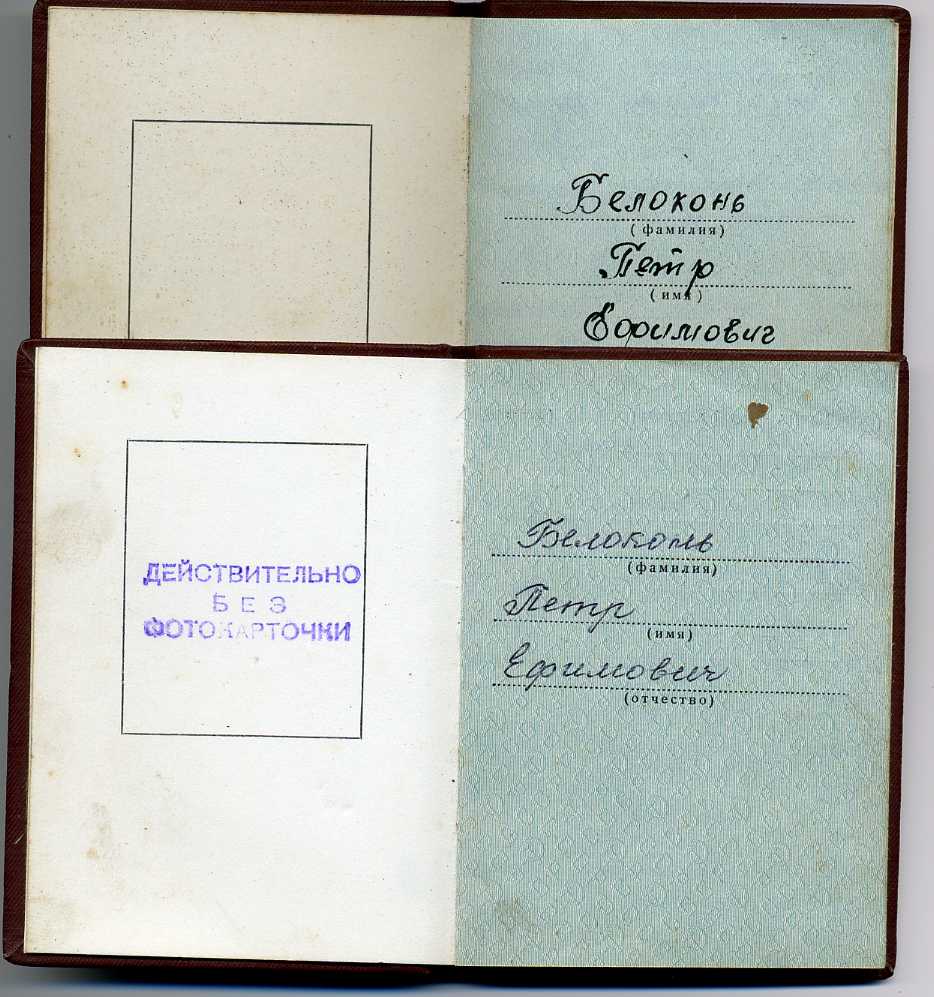 Белоконь
(фамилия)
Петр
(имя)
Ефимович
ДЕЙСТВИТЕЛЬНО
БЕЗ
ФОТОКАРТОЧКИ
Белоконь
(фамилия)
Петр
(имя)
Ефимович
(отчество)